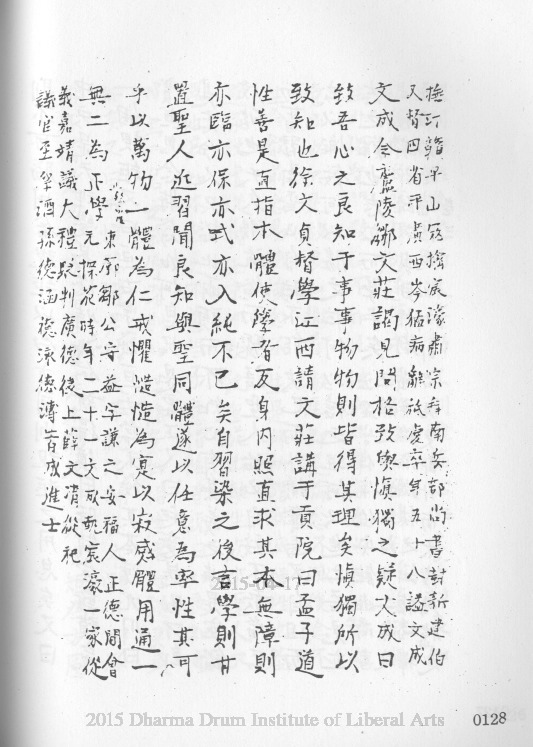 撫江贛平山寇擒宸濠肅宗拜南兵部尚書封新建伯
又督四省平廣西岑猛病離卒年五十八謚文成
文成令廬陵鄒文莊謁見問格致與慎獨之疑文成曰
致吾心之良知于事事物物則皆得其理矣慎獨所以
致知也徐文貞督學江西請文莊講于貢院曰孟子道
性善是直指本體使學者反身內照直求其本無障則
亦臨亦保亦式亦入純不已矣自習染之後言學則甘
置聖人近習聞良知與聖同體遂以任意為率性其可
乎以萬物一體為仁戒懼慥慥為寔以寂感體用通一
無二為正學
東廓鄒公守益字謙之安福人正德間會
元探花時年二十一文成執宸濠一家從
義嘉靖議大禮貶判廣德後上薛文清從祀
議官至祭酒孫德涵德泳德溥皆成進士
2015-04-17
2015 Dharma Drum Institute of Liberal Arts
0128